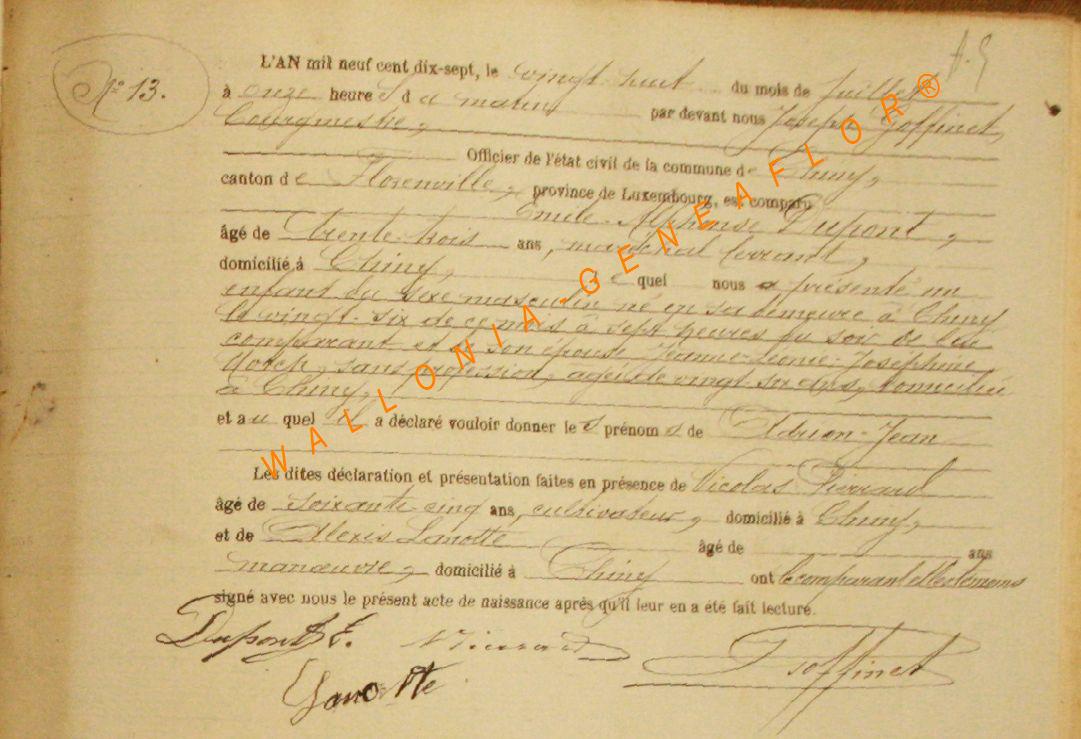 A. 9
N° 13.
L'AN mil neuf cent dix-sept, le vingt huit du mois de Juillet
à onze heures du matin par devant nous Joseph Goffinet,
Bourgmestre,
Officier de l'état civil de la commune de Chiny,
canton de Florenville, province de Luxembourg, est comparu
Emile-Alphonse Dupont,
âgé de trente-trois ans, maréchal ferrant,
domicilié à Chiny, le quel nous a présenté un
enfant du sexe masculin né en sa demeure à Chiny
le vingt-six de ce mois à sept heures du soir de lui
comparant et de son épouse Jeanne-Léonie-Joséphine
sans profession, âgée de vingt six ans, domiciliée
à Chiny,
et au quel il a déclaré vouloir donner les prénoms de Adrien-Jean
Les dites déclaration et présentation faites en présence de Nicolas Pierrard
âgé de soixante cinq ans, cultivateur, domicilié à Chiny,
et de Alexis Lanotte âgé de ans
manœuvre, domicilié à Chiny ont le comparant et les témoins
signé avec nous le présent acte de naissance après qu'il leur en a été fait lecture.
Dupont E. N Pierrard J Goffinet
Lanotte
WALLONIA-GENEAFLOR®